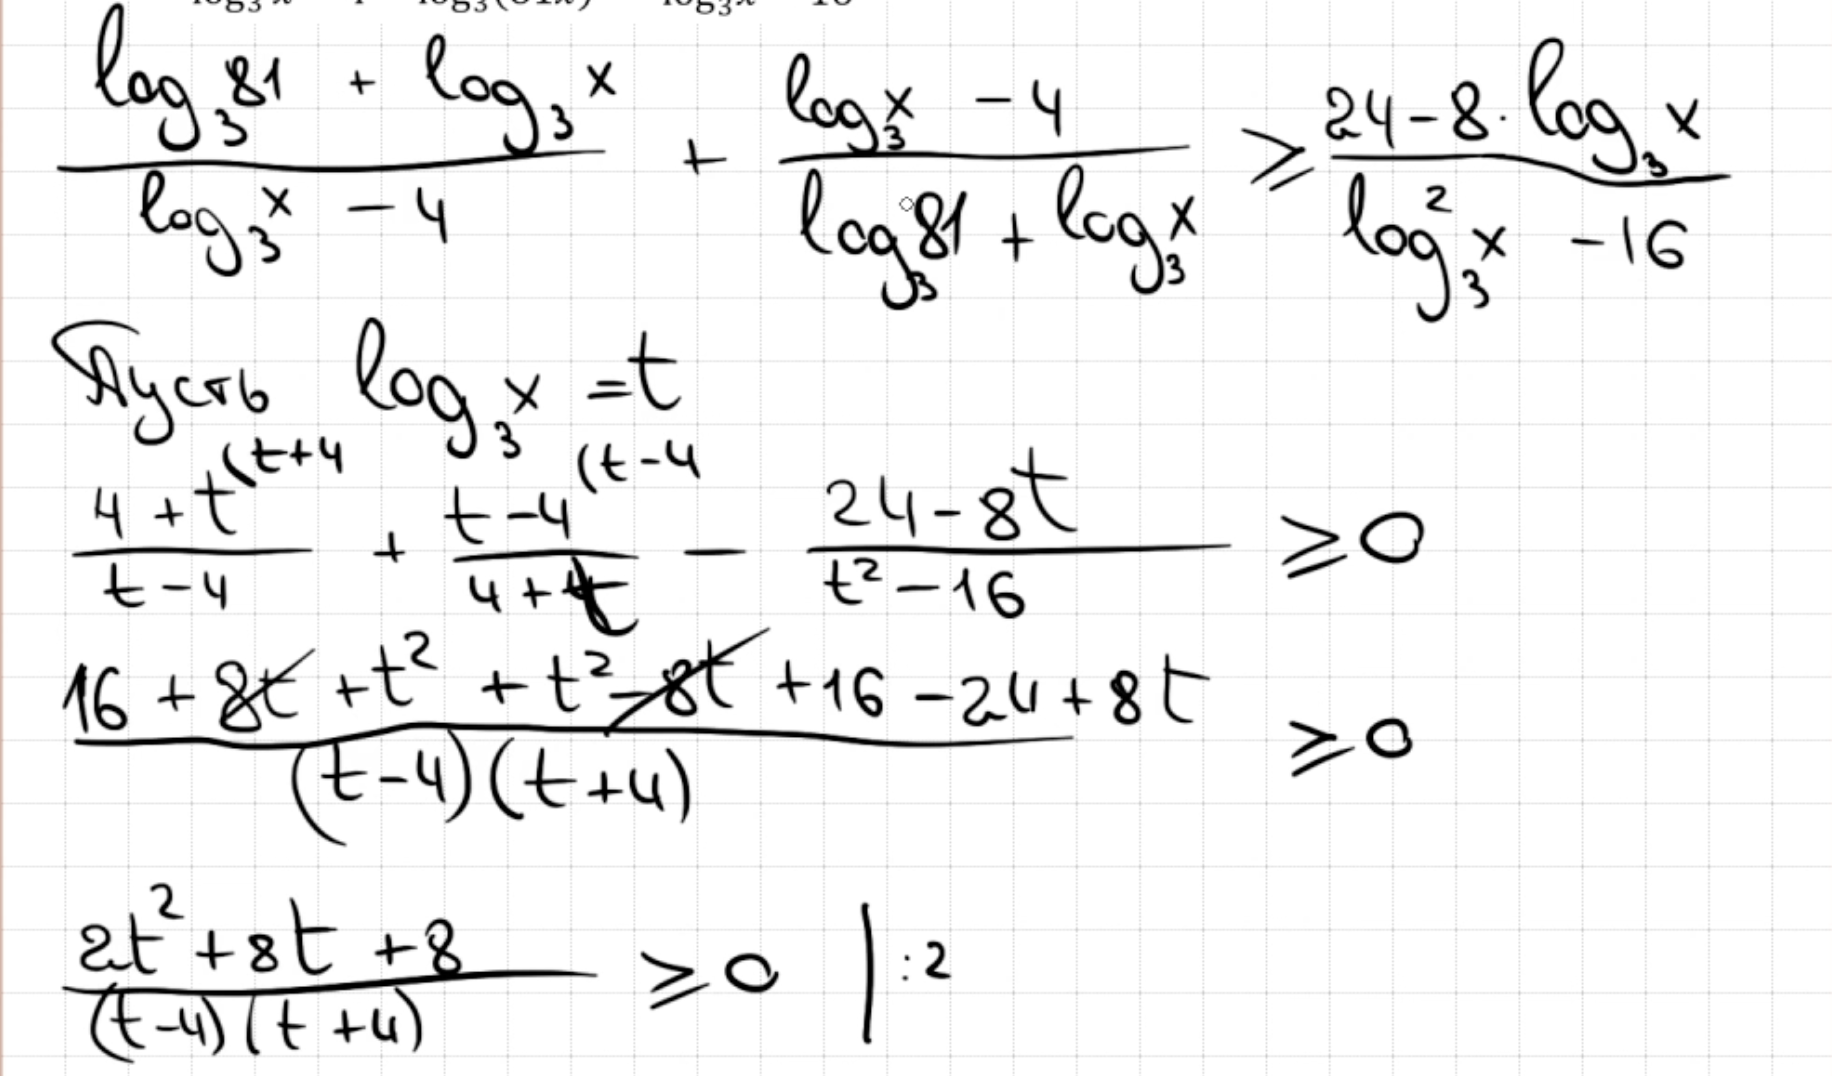 (log₃81 + log₃x)/(log₃x − 4) + (log₃x − 4)/(log₃81 + log₃x) ⩾ (24 − 8·log₃x)/(log₃²x − 16)
Пусть log₃x = t
(4 + t)/(t − 4) (t+4 + (t − 4)/(4 + t) (t−4 − (24 − 8t)/(t² − 16) ⩾ 0
(16 + 8t + t² + t² − 8t + 16 − 24 + 8t)/((t − 4)(t + 4)) ⩾ 0
(2t² + 8t + 8)/((t − 4)(t + 4)) ⩾ 0 | : 2